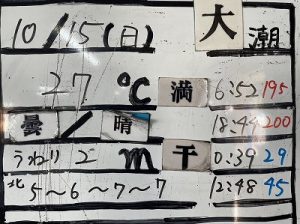 10/15(日) 大潮
27℃ 満 6:52 195
曇/晴 18:49 200
うねり 2m 干 0:39 29
北 5〜6〜7〜7 12:48 45